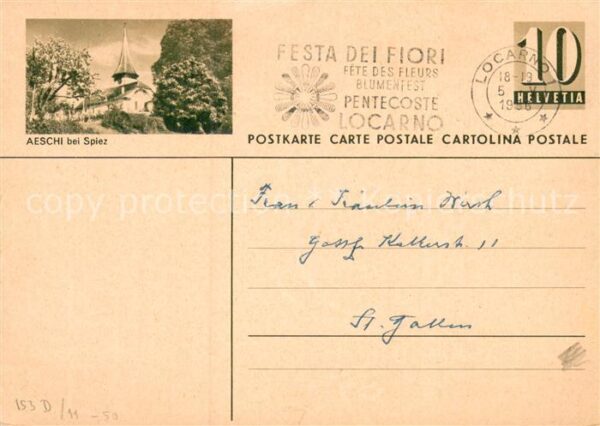 AESCHI bei Spiez
FESTA DEI FIORI
FÊTE DES FLEURS
BLUMENFEST
PENTECOSTE
LOCARNO
LOCARNO
18-19
5 V
10
HELVETIA
POSTKARTE CARTE POSTALE CARTOLINA POSTALE
copy protection Kopierschutz
Frau & Fräulein Hirsh
Gottfr. Kellerstr. 11
St. Gallen
153 D/11 -50